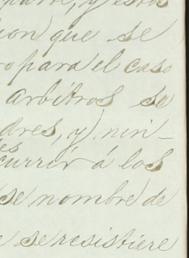 ion que se
o para el caso
arbitros se
dres, y, nin-
currir á los
se nombre de
e se resistiere